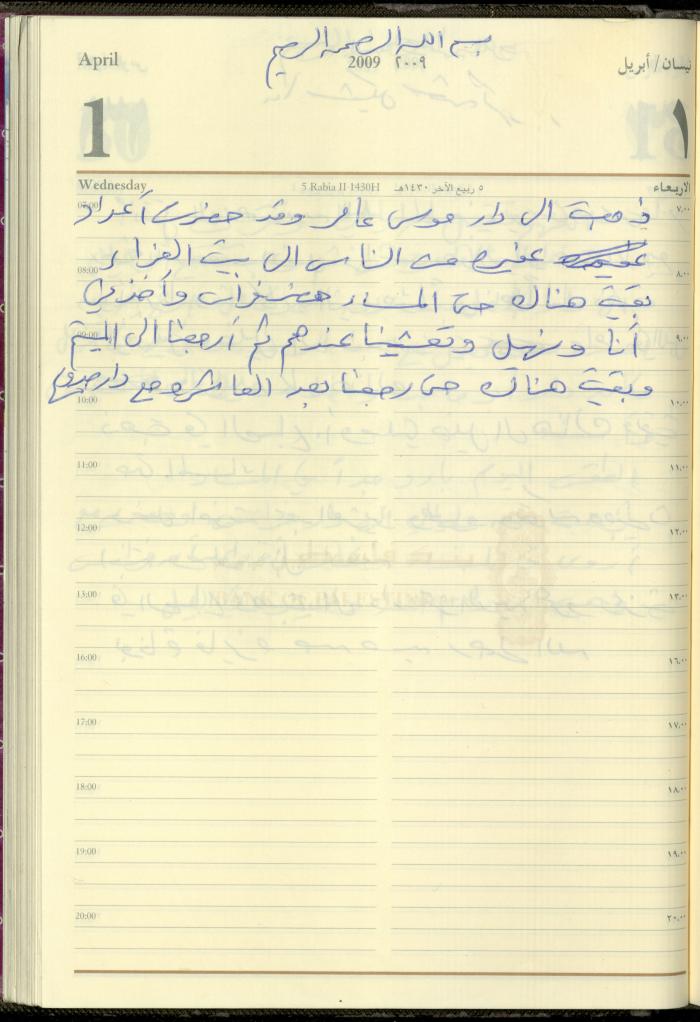 بسم الله الرحمن الرحيم
April 2009 ٢٠٠٩ نيسان / أبريل
1 ١
Wednesday 5 Rabia II 1430H ٥ ربيع الآخر ١٤٣٠هـ الاربعاء
07:00 ذهبة الى دار موسى عامر وقد حضرت أعداد ٧,٠٠
غفيره من الناس الى بيت العزاء
08:00 ٨,٠٠
بقية هناك حتى المساء وأخذني
09:00 أنا ونهيل وتعشينا عندهم ثم أرجعنا الى الميتم ٩,٠٠
وبقية هناك حتى رجعنا بعد العاشره مع دار
10:00 ١٠,٠٠
11:00 ١١,٠٠
12:00 ١٢,٠٠
13:00 ١٣,٠٠
16:00 ١٦,٠٠
17:00 ١٧,٠٠
18:00 ١٨,٠٠
19:00 ١٩,٠٠
20:00 ٢٠,٠٠